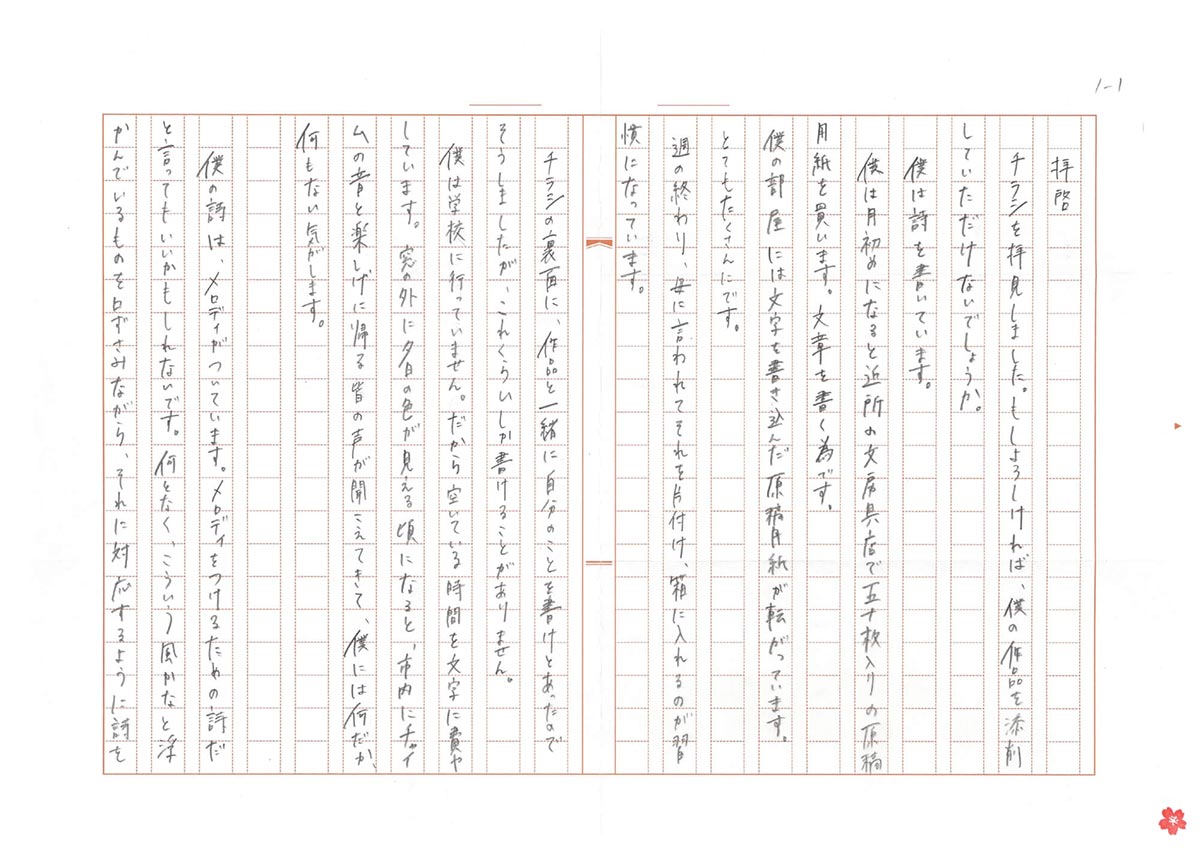 1-1
拝啓
チラシを拝見しました。もしよろしければ、僕の作品を添削
していただけないでしょうか。
僕は詩を書いています。
僕は月初めになると近所の文房具店で五十枚入りの原稿
用紙を買います。文章を書く為です。
僕の部屋には文字を書き込んだ原稿用紙が転がっています。
とてもたくさんにです。
週の終わり、母に言われてそれを片付け、箱に入れるのが習
慣になっています。
チラシの裏面に、作品と一緒に自分のことを書けとあったので
そうしましたが、これくらいしか書けることがありません。
僕は学校に行っていません。だから空いている時間を文字に費や
しています。窓の外に夕日の色が見える頃になると、市内にチャイ
ムの音と楽しげに帰る皆の声が聞こえてきて、僕には何だか、
何もない気がします。
僕の詩は、メロディがついています。メロディをつけるための詩だ
と言ってもいいかもしれないです。何となく、こういう風かなと浮
かんでいるものを口ずさみながら、それに対応するように詩を